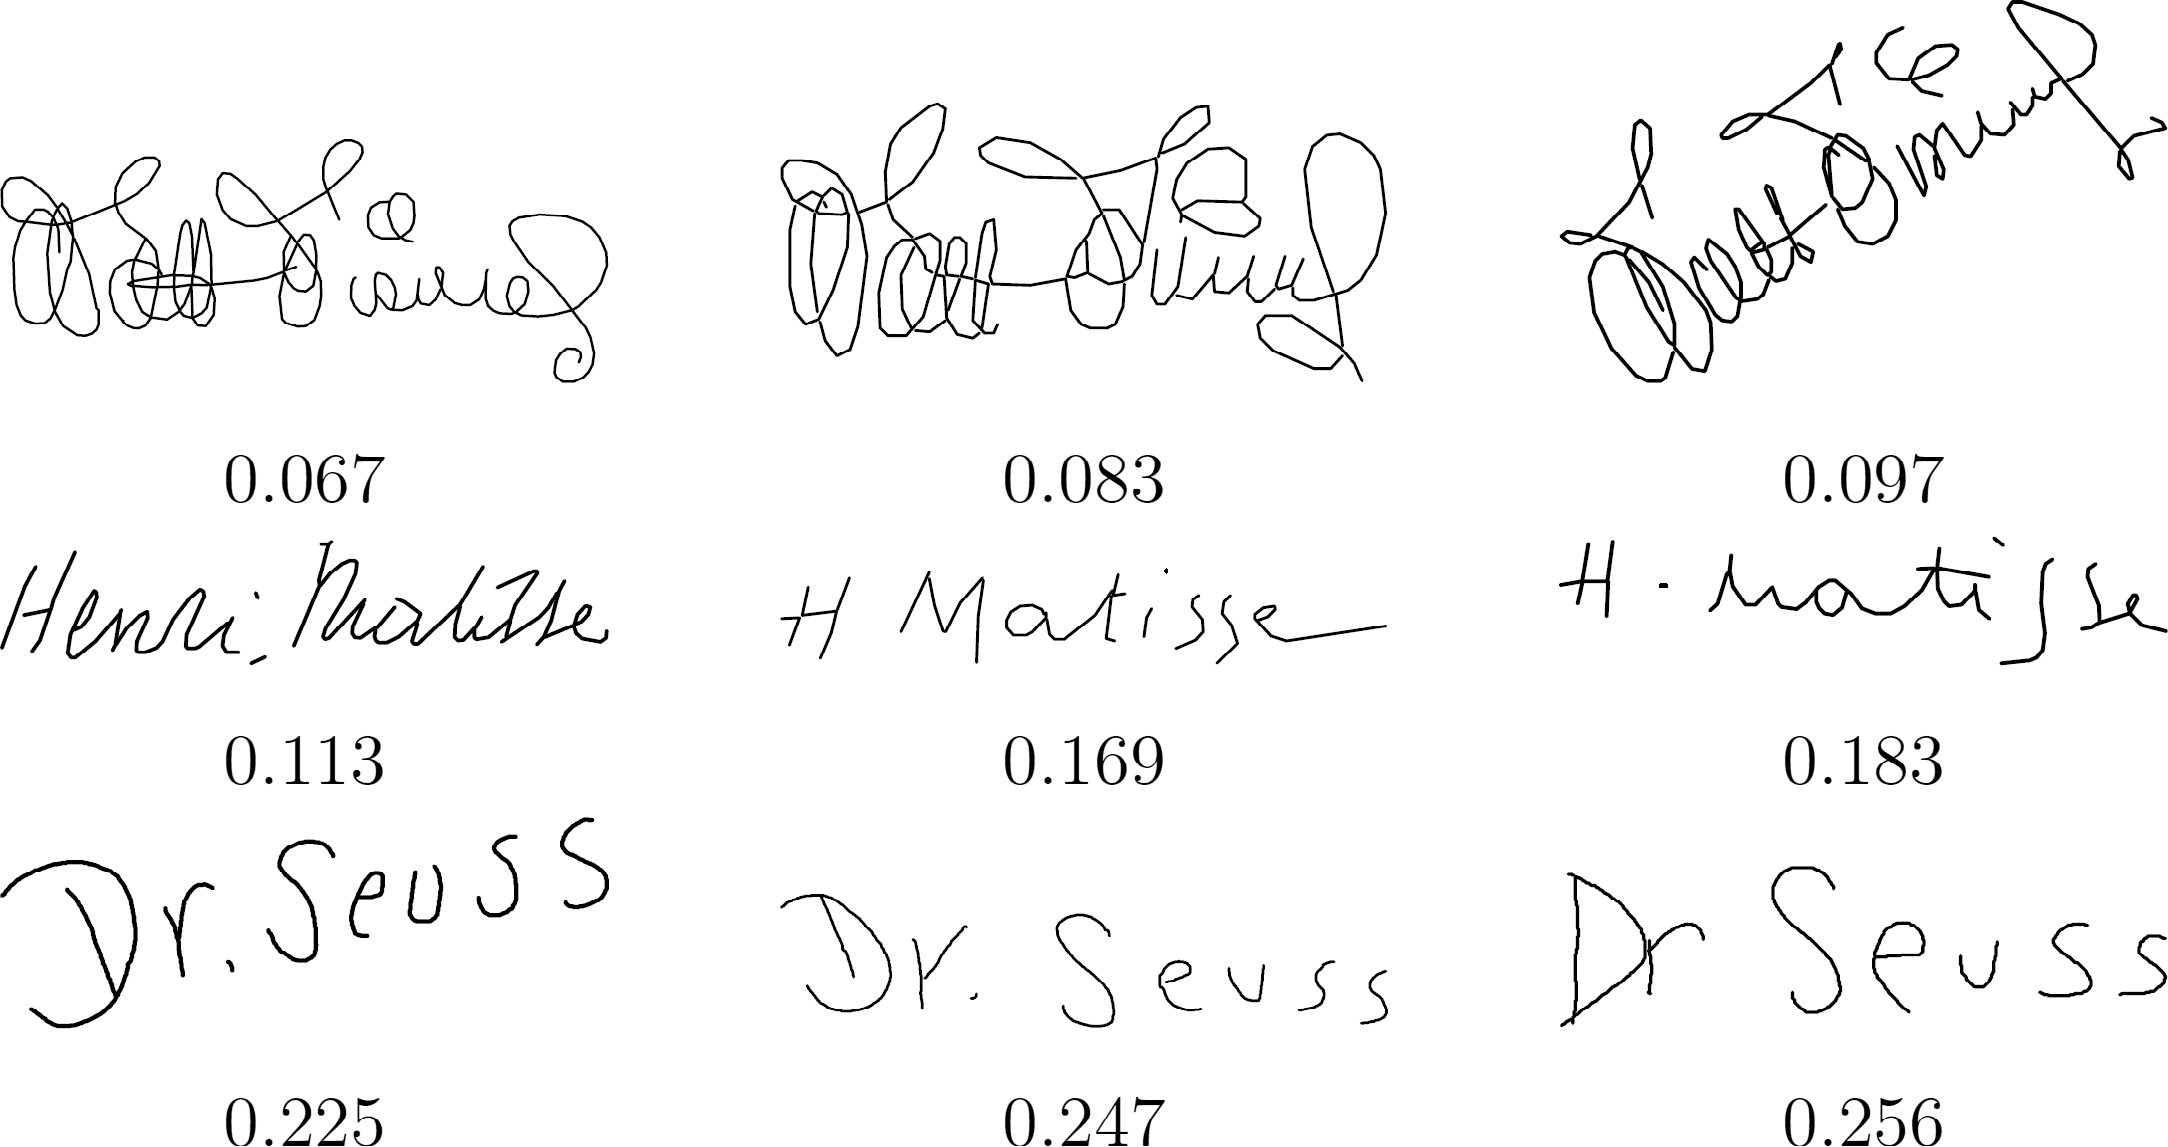 Walt Disney Walt Disney Walt Disney
0.067 0.083 0.097
Henri. Matisse H Matisse H. matisse
0.113 0.169 0.183
Dr. Seuss Dr. Seuss Dr Seuss
0.225 0.247 0.256